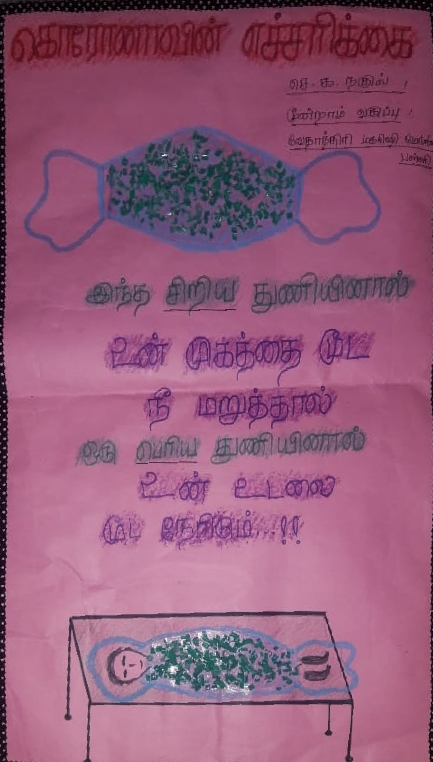 கொரோனாவின் எச்சரிக்கை
செ. க. நகுல் ,
மூன்றாம் வகுப்பு ,
வேதாத்திரி மகரிஷி
பள்ளி
இந்த சிறிய துணியினால்
உன் முகத்தை மூட
நீ மறுத்தால்
ஒரு பெரிய துணியினால்
உன் உடலை
மூட நேரிடும்..!!